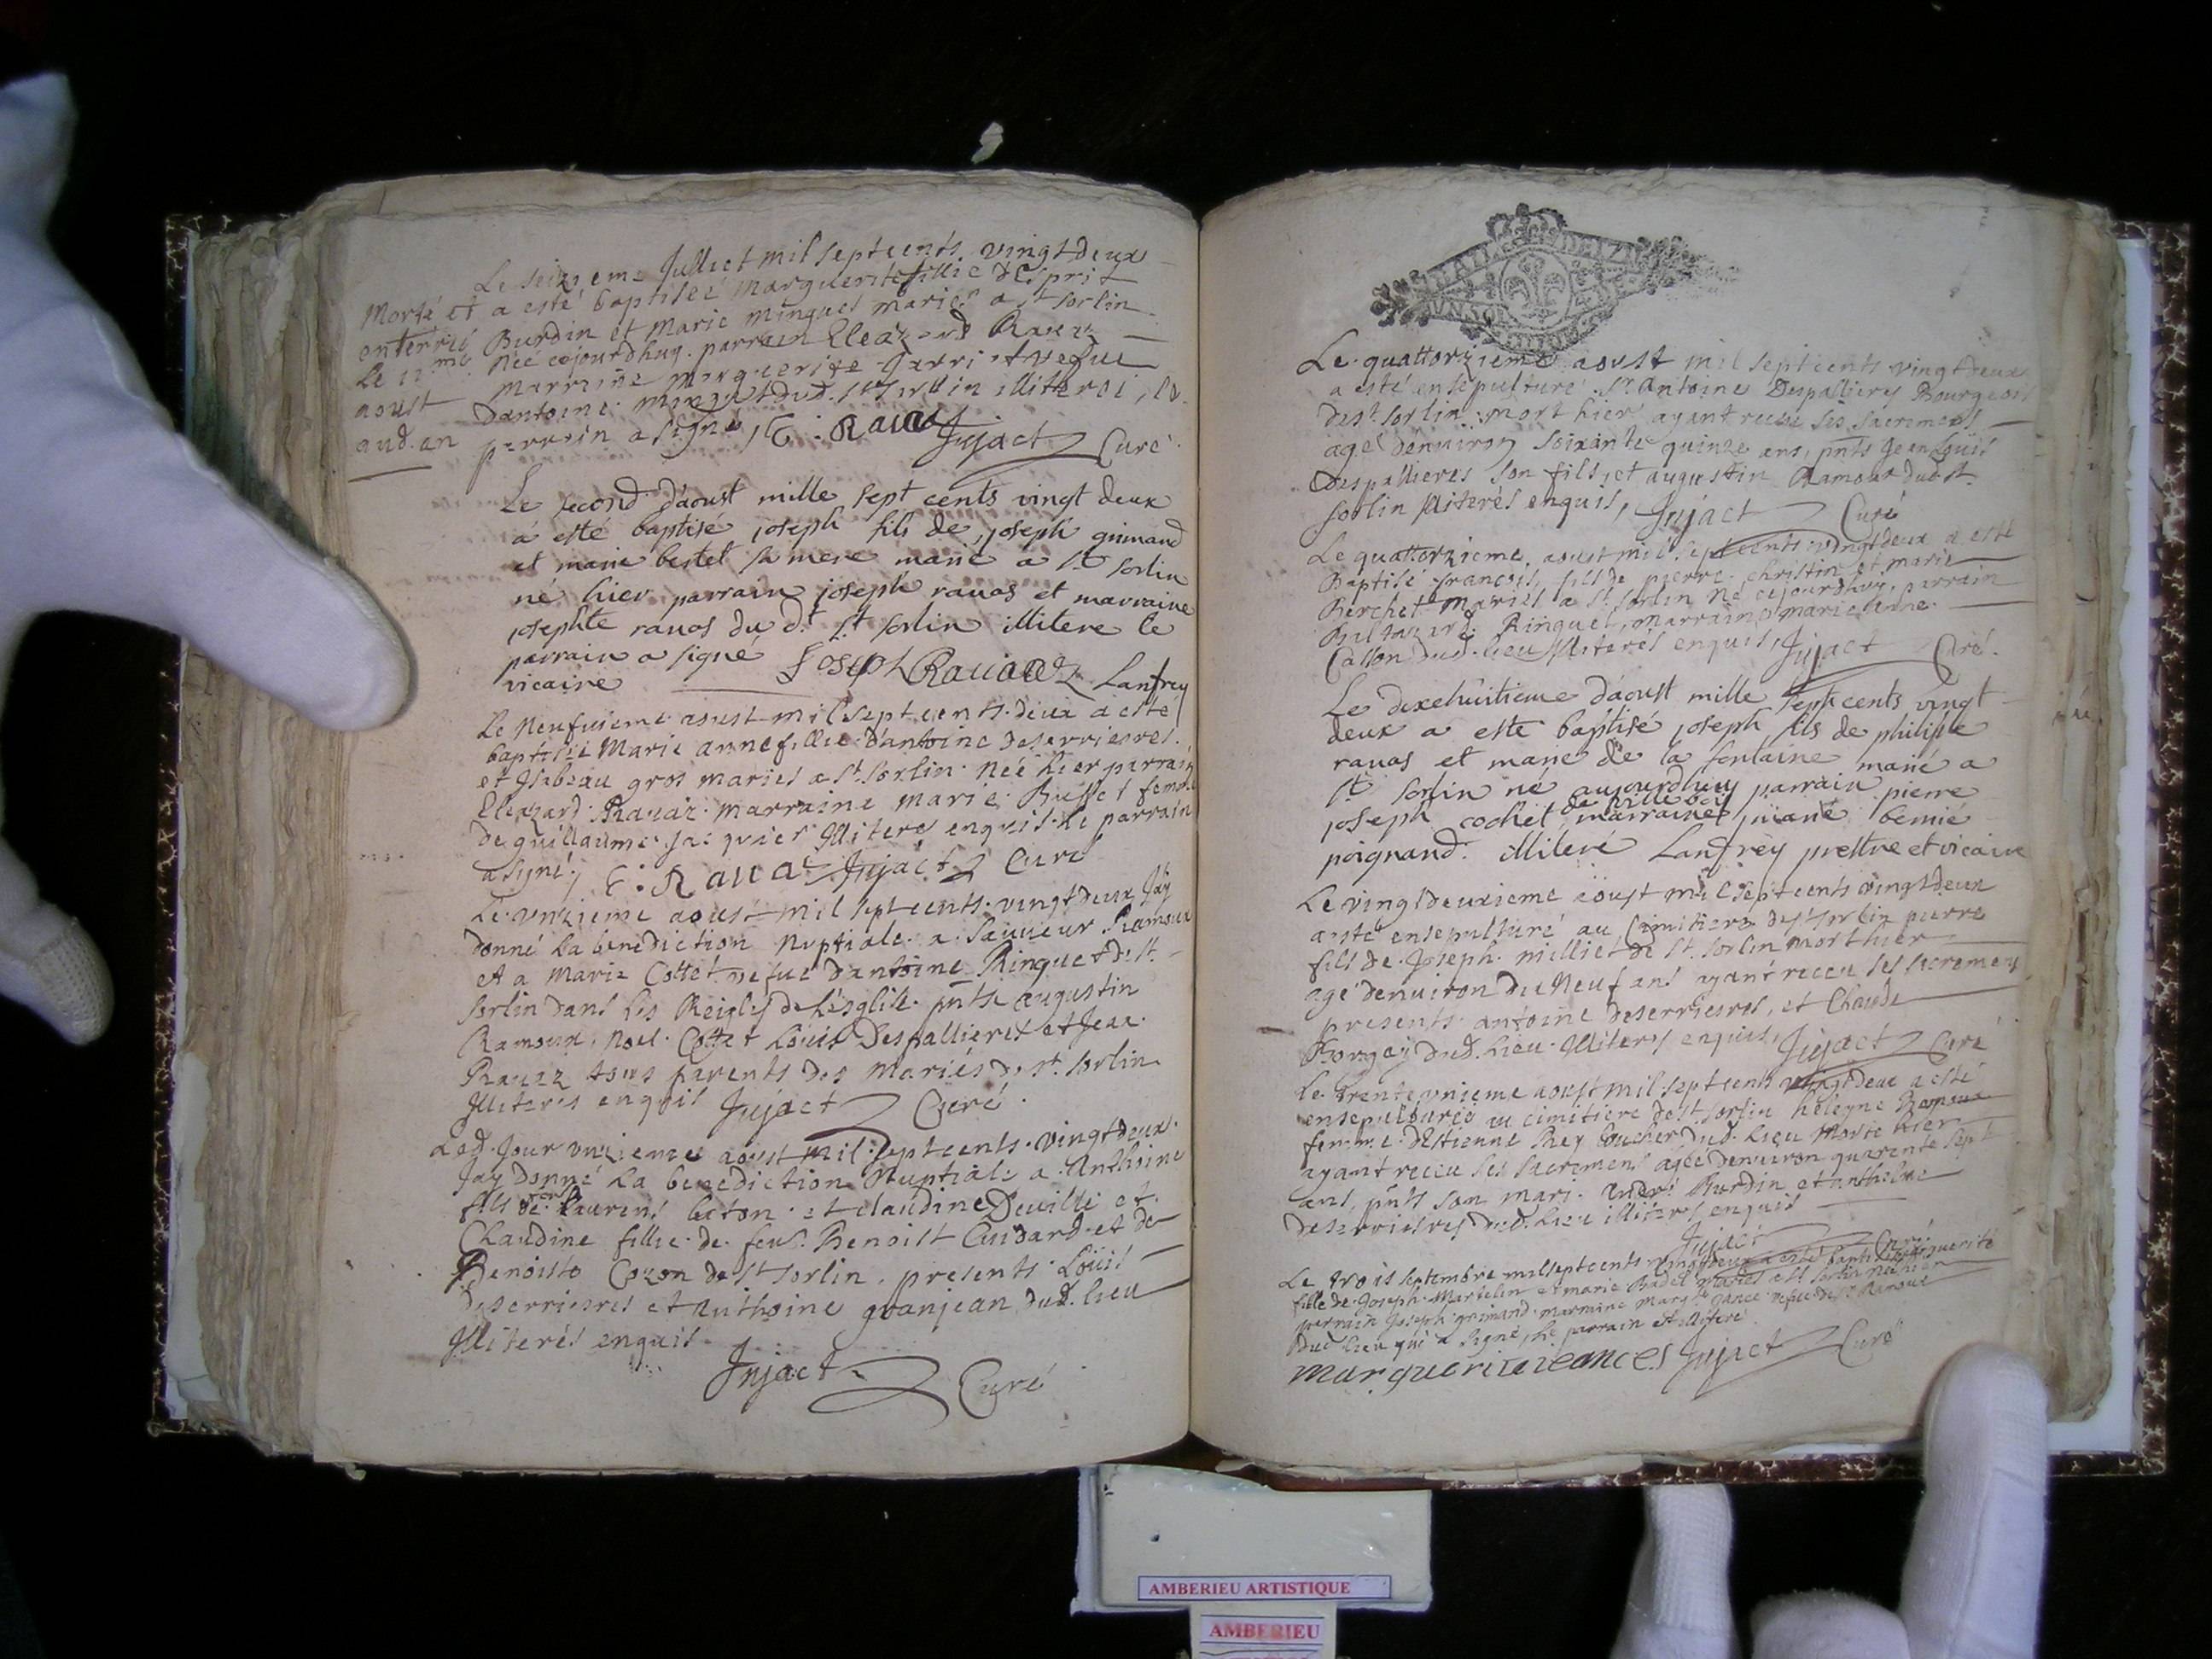 Le seizieme Julliet mil septcents vingtdeux
a esté baptiseé marguerite fillie desprit
Burdin et Marie minguet mariés a st sorlin
Neé cejourdhuy. parrain Eleazard Rauaz
marraine marguerite vefue
dantoine dud. st sorlin illiterei, le
parrain a signé, E. Rauaz Jujact Curé
Morte et
enterreé
le 11me
aoust
aud. an
Le second d'aoust mille sept cents vingt deux
à esté baptisé joseph fils de joseph guinand
et marie bestet sa mere marié a st sorlin
né hier parrain joseph rauas et marraine
josephte rauas du dt st sorlin illitere le
parrain a signé Joseph Rauaz Lanfrey
vicaire
Le Neufuieme aoust mil septcents deux a esté
baptiseé Marie anne fillie d'antoine Deserrieres
et Isabeau gros mariés a st sorlin Neé hier parrain
Eleazard Rauaz marraine marie Buffet femme
de guillaume Jacquier Illiteres enquis le parrain
a signé, E. Rauaz Jujact Curé
Le unzieme aoust mil septcents vingtdeux Jay
donné la benediction Nuptiale a Sauueur Ramoux
et a Marie Cottet vefue dantoine Ringuet de st
sorlin dans les Reigles de l'esglise pnts augustin
Ramoux, Noel Cottet Louis Despallieres et Jean
Rauaz tous parents des mariés de st sorlin
Illiterés enquis Jujact Curé
Led. Jour unzieme aoust mil septcents vingtdeux
Jay donné la benediction Nuptiale a Anthoine
fils de feu Laurens et claudine Deuille et
Claudine fillie de feu Benoist Cusard et de
Benoiste Cozon de st sorlin, presents Loüis
Deserrieres et Anthoine granjean dud. lieu
Illiterés enquis
Jujact Curé
Le quattorzieme aoust mil septcents vingtdeux
a esté ensepulturé sr Antoine Despallieres Bourgeois
de st sorlin mort hier ayant receu ses sacrements
agé d'enuiron soixante quinze ans, pnts Jean Loüis
Despallieres son fils, et augustin Ramoux dud st
sorlin Illiterés enquis, Jujact Curé
Le quattorzieme aoust mil septcents vingtdeux a esté
Baptisé françois, fils de pierre christin et marie
Berchet mariés a st sorlin Né cejourdhuy, parrain
Baltazard Ringuet, marraine marie anne
Casson dud. lieu Illiterés enquis, Jujact Curé
Le dixehuitieme d'aoust mille sept cents vingt
deux a esté baptisé joseph fils de philipe
rauas et marie de la fontaine marié a
st sorlin né aujourdhuy parrain pierre
joseph cochet de marraine
poignand. illiteré Lanfrey prestre et vicaire
Le vingtdeuxieme aoust mil septcents vingtdeux
a esté ensepulturé au Cimitiere de st sorlin pierre
fils de Joseph milliet de st sorlin mort hier
agé denuiron dix Neuf ans ayant receu ses sacremens
presents antoine Deserrieres, et Claude
Borgey dud. lieu Illiteres enquis, Jujact Curé
Le trente unieme aoust mil septcents vingtdeux a esté
ensepultureé au cimitiere de st sorlin heleyne Ramoux
femme d'Estienne Rey boucher dud. lieu Morte hier
ayant receu ses sacremens ageé denuiron quarente sept
ans, pnts son mari André Burdin et anthelme
Deserrieres dud. lieu illiterés enquis
Jujact Curé
Le trois septembre mil septcents vingtdeux a esté baptiseé marguerite
fille de Joseph Martelin et marie Badet mariés a st sorlin neé hier
parrain Joseph grimand marraine margte Jance vefue de Ramoux
dud. lieu qui a signé, le parrain est illiteré
marguerite ieances Jujact Curé
AMBERIEU ARTISTIQUE
AMBERIEU